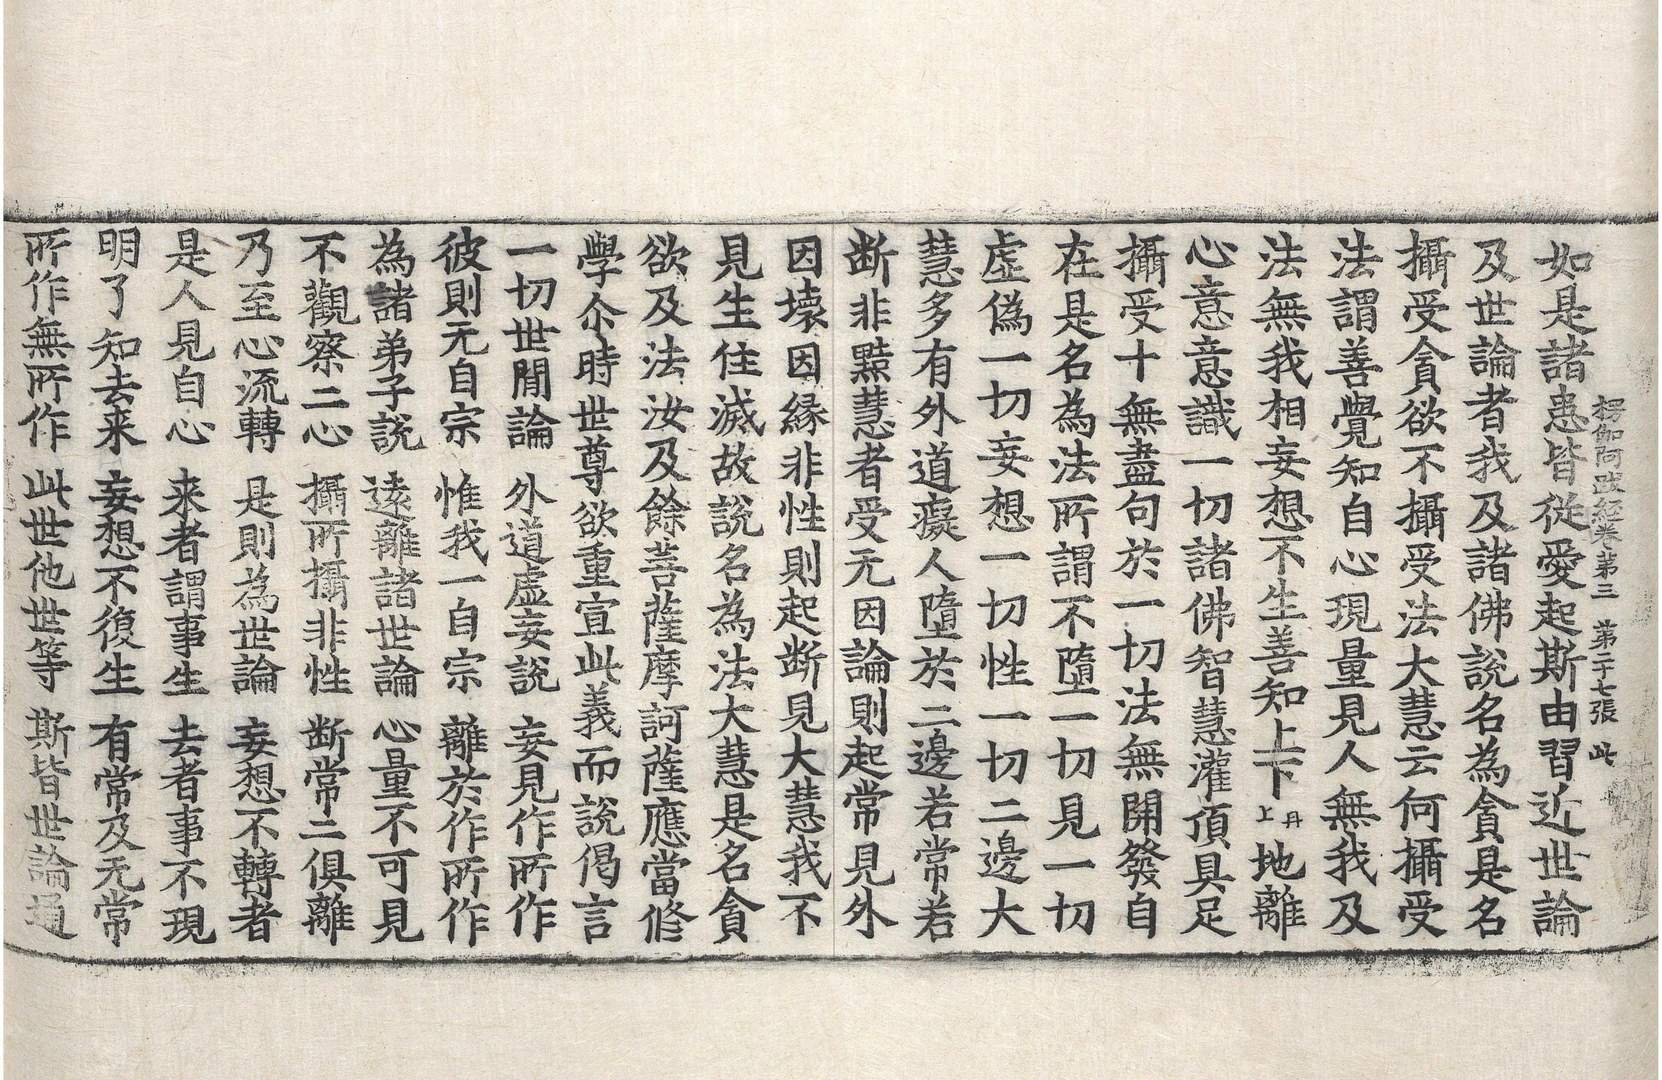 楞伽阿跋經卷第三　第二十七張　此
如是諸患皆從愛起斯由習近世論
及世論者我及諸佛說名為貪是名
攝受貪欲不攝受法大慧云何攝受
法謂善覺知自心現量見人無我及
法無我相妄想不生善知上下丹上地離
心意意識一切諸佛智慧灌頂具足
攝受十無盡句於一切法無開發自
在是名為法所謂不墮一切見一切
虛偽一切妄想一切性一切二邊大
慧多有外道癡人墮於二邊若常若
断非黠慧者受无因論則起常見外
因壞因緣非性則起断見大慧我不
見生住滅故說名為法大慧是名貪
欲及法汝及餘菩薩摩訶薩應當修
學尒時世尊欲重宣此義而說偈言
一切世閒論　外道虛妄說　妄見作所作
彼則无自宗　惟我一自宗　離於作所作
為諸弟子說　遠離諸世論　心量不可見
不觀察二心　攝所攝非性　断常二俱離
乃至心流轉　是則為世論　妄想不轉者
是人見自心　来者謂事生　去者事不現
明了知去来　妄想不復生　有常及无常
所作無所作　此世他世等　斯皆世論通